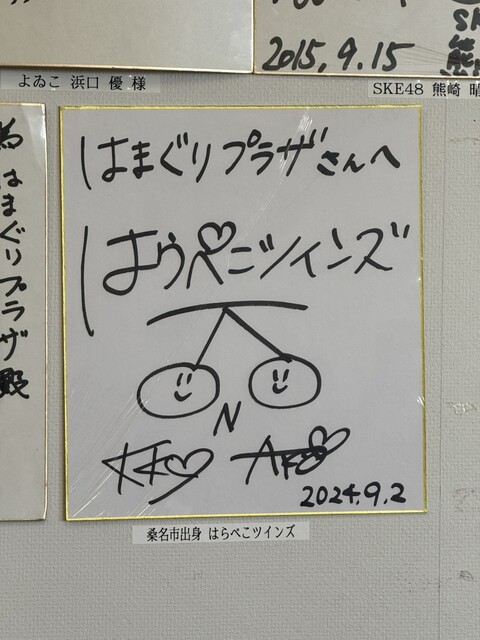 2015.9.15
よゐこ 浜口 優 様
SKE48 熊崎 晴
為 はまぐりプラザ殿
はまぐりプラザさんへ
はらぺこツインズ
N
2024.9.2
桑名市出身 はらぺこツインズ